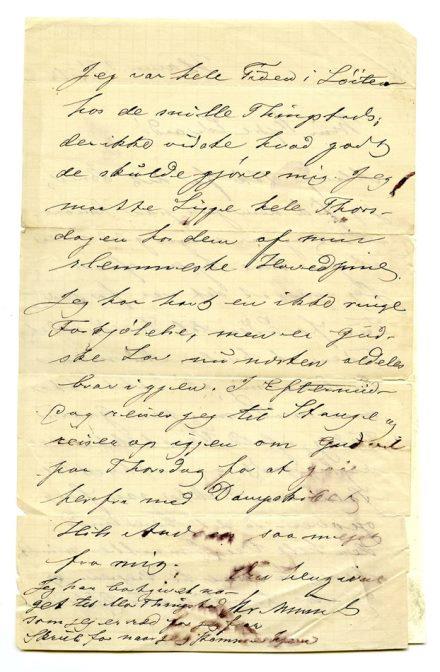 Jeg var hele Tiden i Löiten
hos de snille Thingstads;
der ikke vidste hvad godt
de skulde gjöre mig. Jeg
maatte ligge hele Thors-
dagen hos dem af min
slemmeste Hovedpine.
Jeg har havt en ikke ringe
Forkjölelse, men er Gud-
ske Lov nu næsten aldeles
bra igjen. I Eftermid-
dag reiser jeg til Stange og
reiser op igjen om Gud vil
paa Thorsdag for at
herfra med Dampskibet
Hils saa meget
fra mig. Din hengivne
Jeg har no-
get til Thingstad
som jeg er ræd for